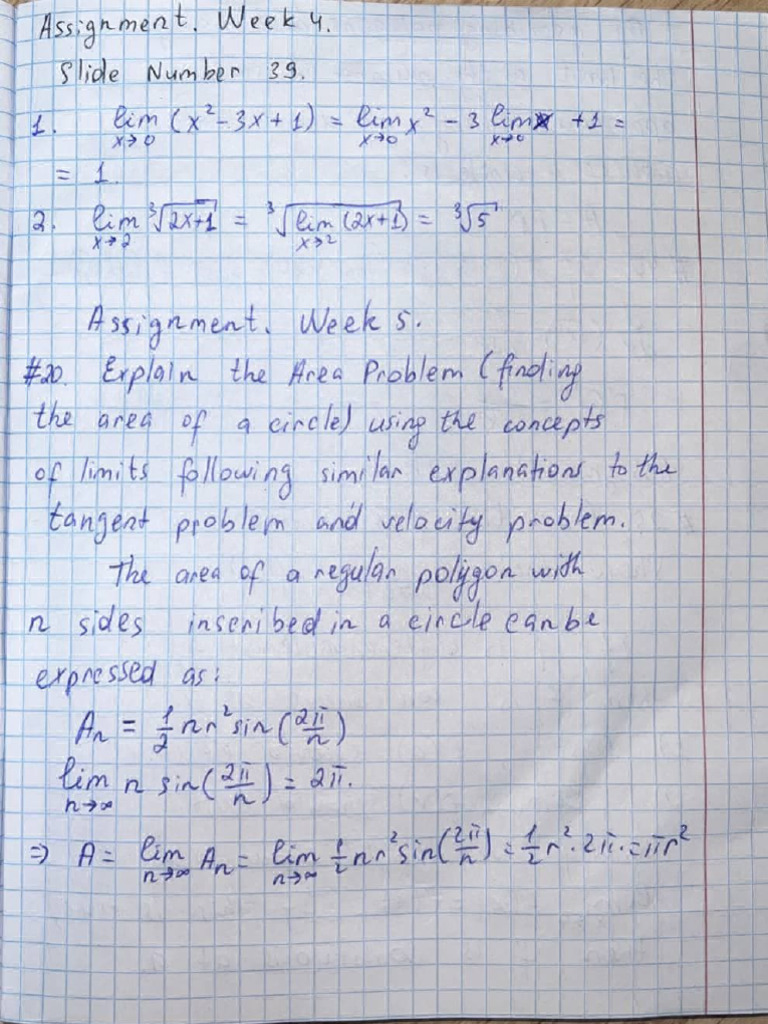 Assignment. Week 4.
Slide Number 39.
1. lim x→0 (x² - 3x + 1) = lim x→0 x² - 3 lim x→0 x + 1 =
= 1.
2. lim x→2 ³√(2x+1) = ³√(lim x→2 (2x+1)) = ³√5
Assignment. Week 5.
#20. Explain the Area Problem (finding
the area of a circle) using the concepts
of limits following similar explanations to the
tangent problem and velocity problem.
The area of a regular polygon with
n sides inscribed in a circle can be
expressed as:
Aₙ = 1/2 nr² sin(2π/n)
lim n→∞ n sin(2π/n) = 2π.
⇒ A = lim n→∞ Aₙ = lim n→∞ 1/2 nr² sin(2π/n) = 1/2 r² · 2π · = πr²